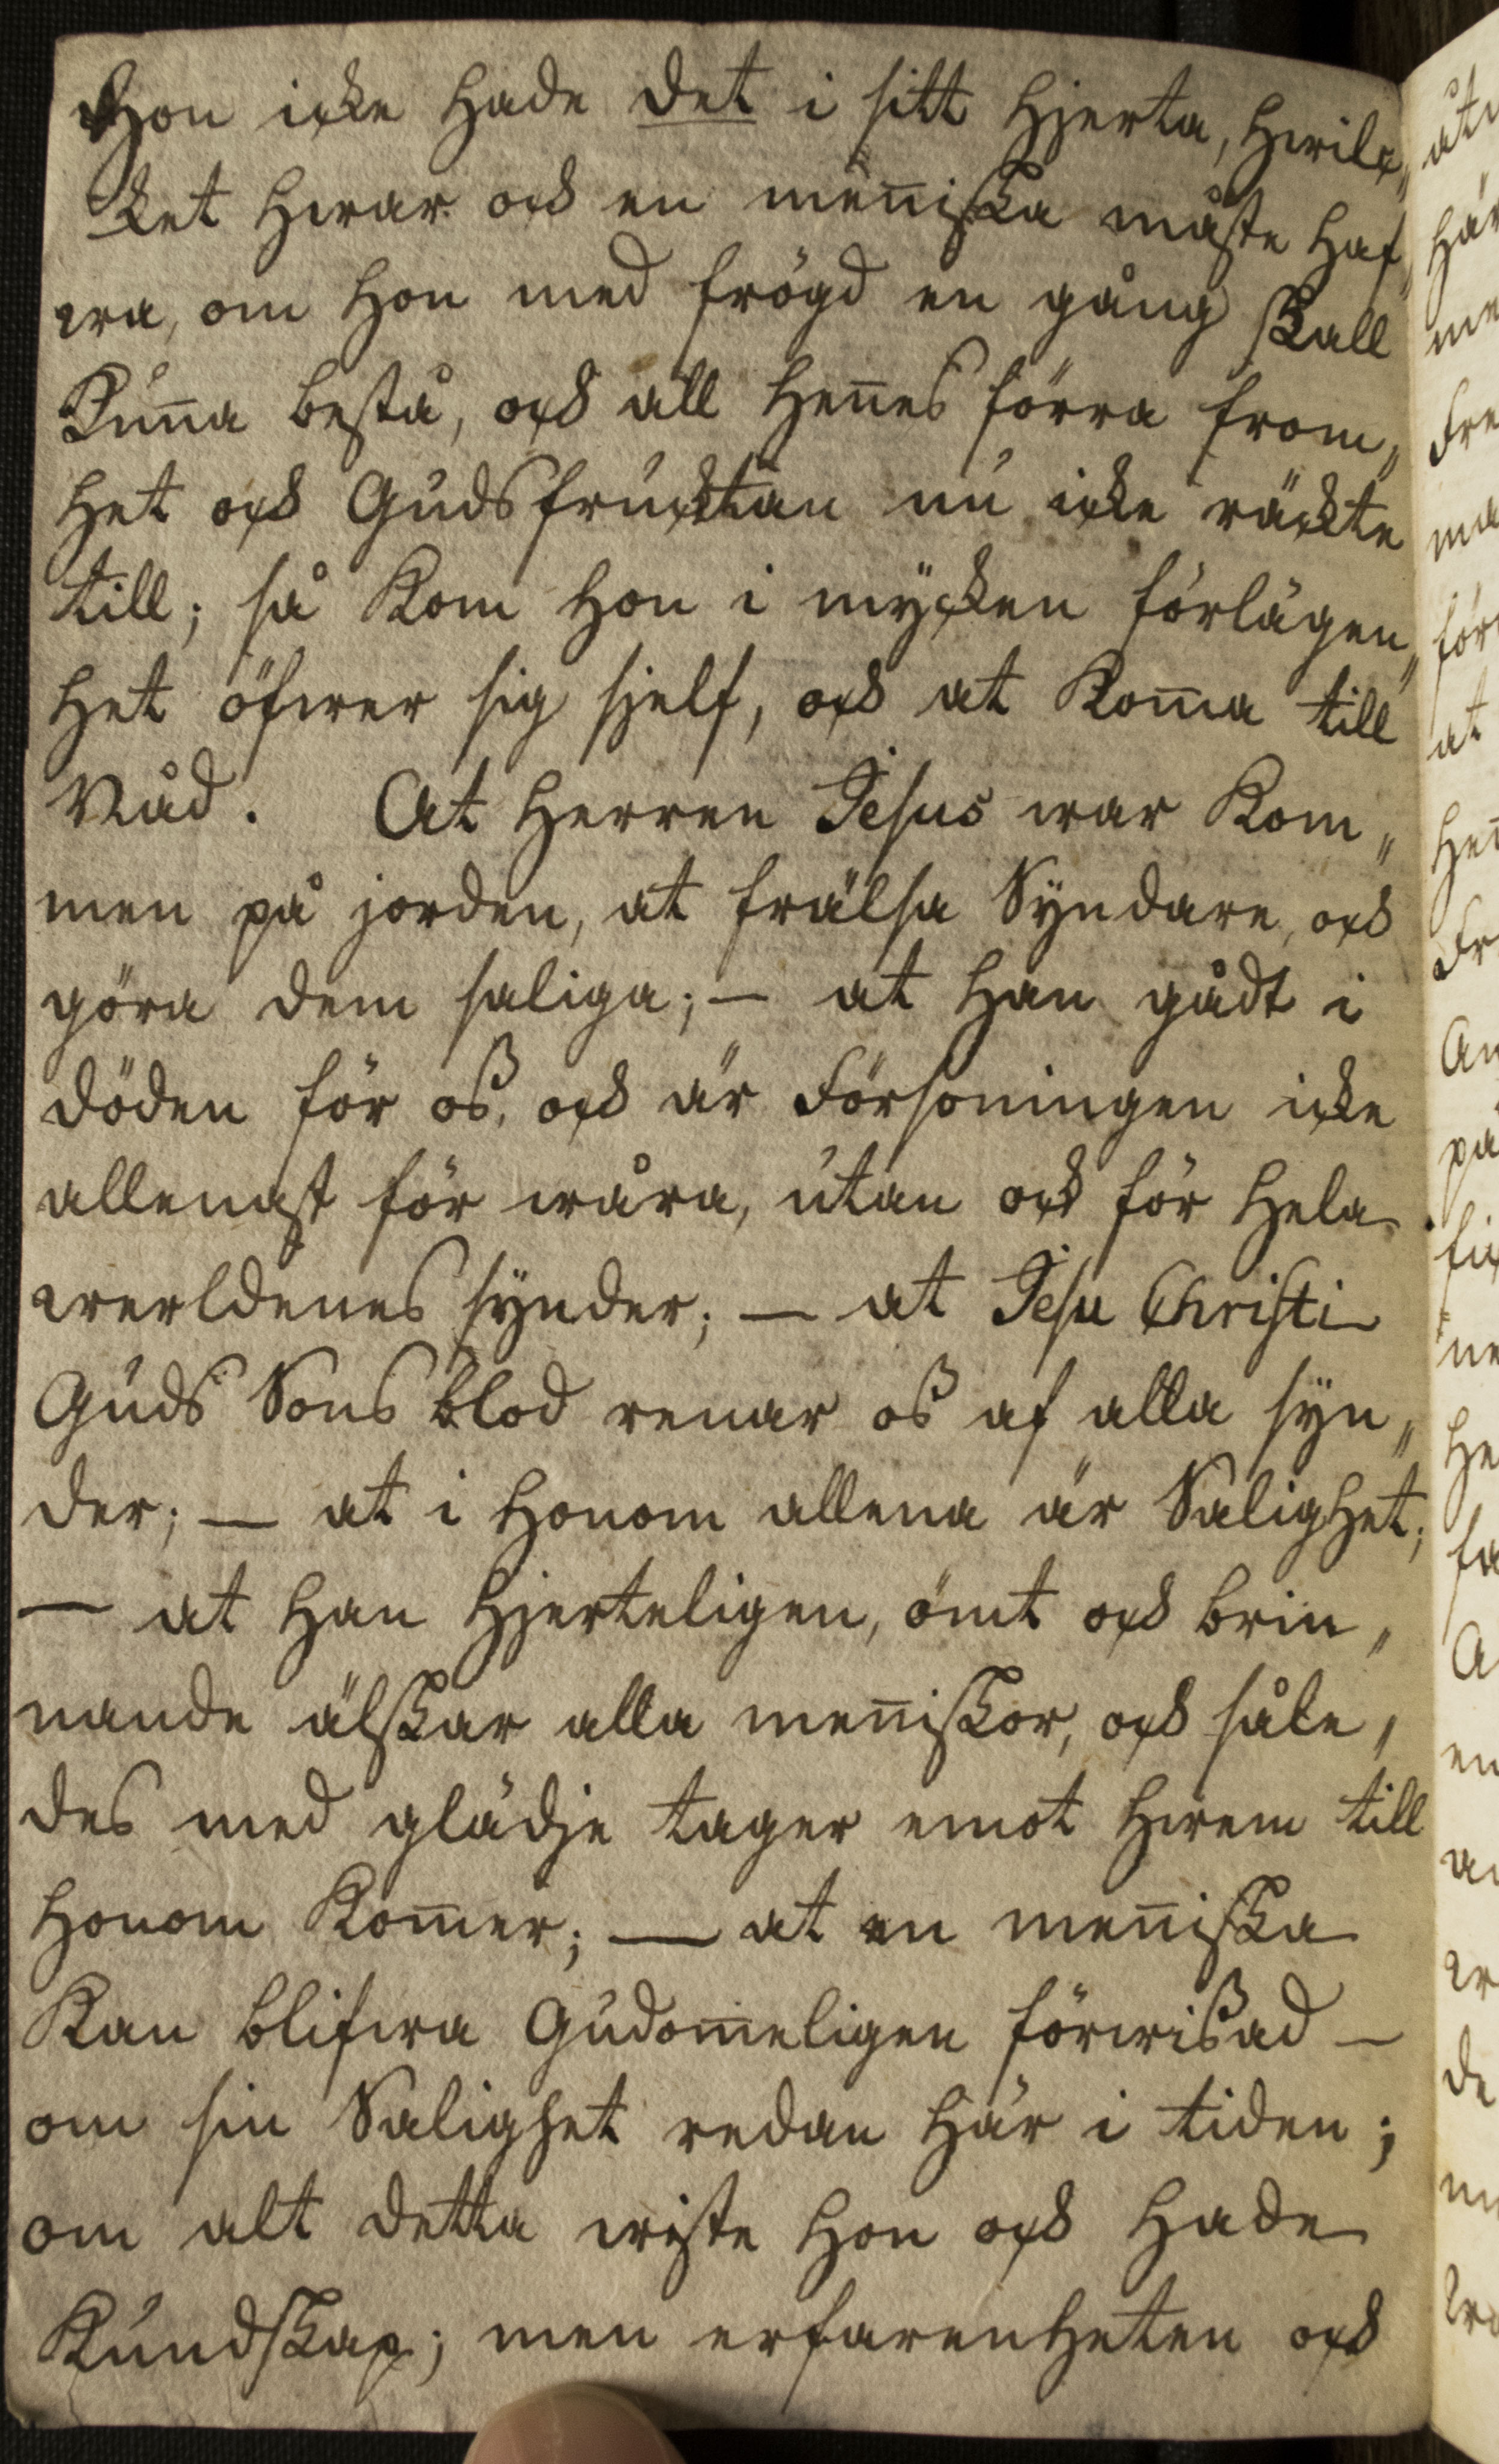 Hon icke hade det i sitt hjerta, hwilc„
ket hwar och en meñiska måste haf„
wa, om hon med frögd en gång skall
kuña bestå, och all heñes förra from„
het och Gudsfrucktan nu icke räckte
till; så kom hon i mycken förlägen„
het öfwer sig sjelf, och at kom̄a till
Nåd. At Herren Jesus war kom„
men på jorden, at frälsa Syndare, och
göra dem saliga; — at han gådt i
döden för oß, och är Försoningen icke
allenast för wåra, utan och för hela
werldenes synder; — at Jesu Christi
Guds Sons blod renar oß af alla syn„
der; — at i honom allena är Salighet;
— at han hjerteligen, ömt och brin„
nande älskar alla meñiskor, och såle„
des med glädje tager emot hwem till
honom kom̄er; — at en meñiska
kan blifwa Gudom̄eligen förwißad —
om sin Salighet redan här i tiden;
om alt detta wiste hon och hade
kundskap; men erfarenheten och